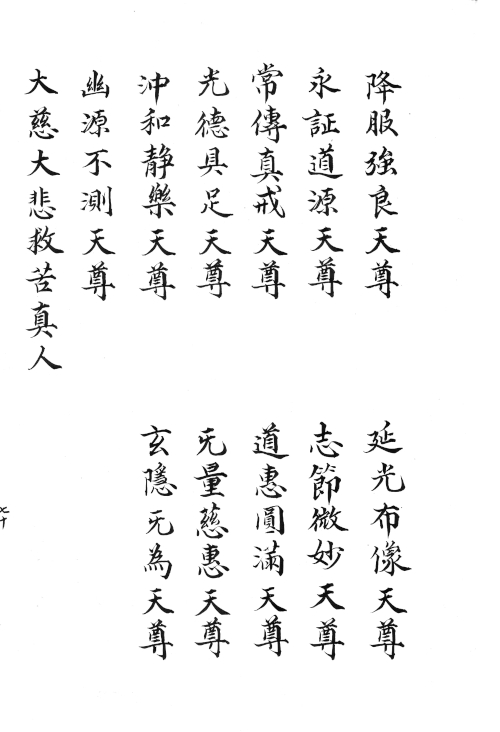 降服強良天尊
延光布像天尊
永証道源天尊
志節微妙天尊
常傳真戒天尊
道惠圓滿天尊
光德具足天尊
旡量慈惠天尊
沖和静樂天尊
玄隱旡為天尊
幽源不測天尊
大慈大悲救苦真人